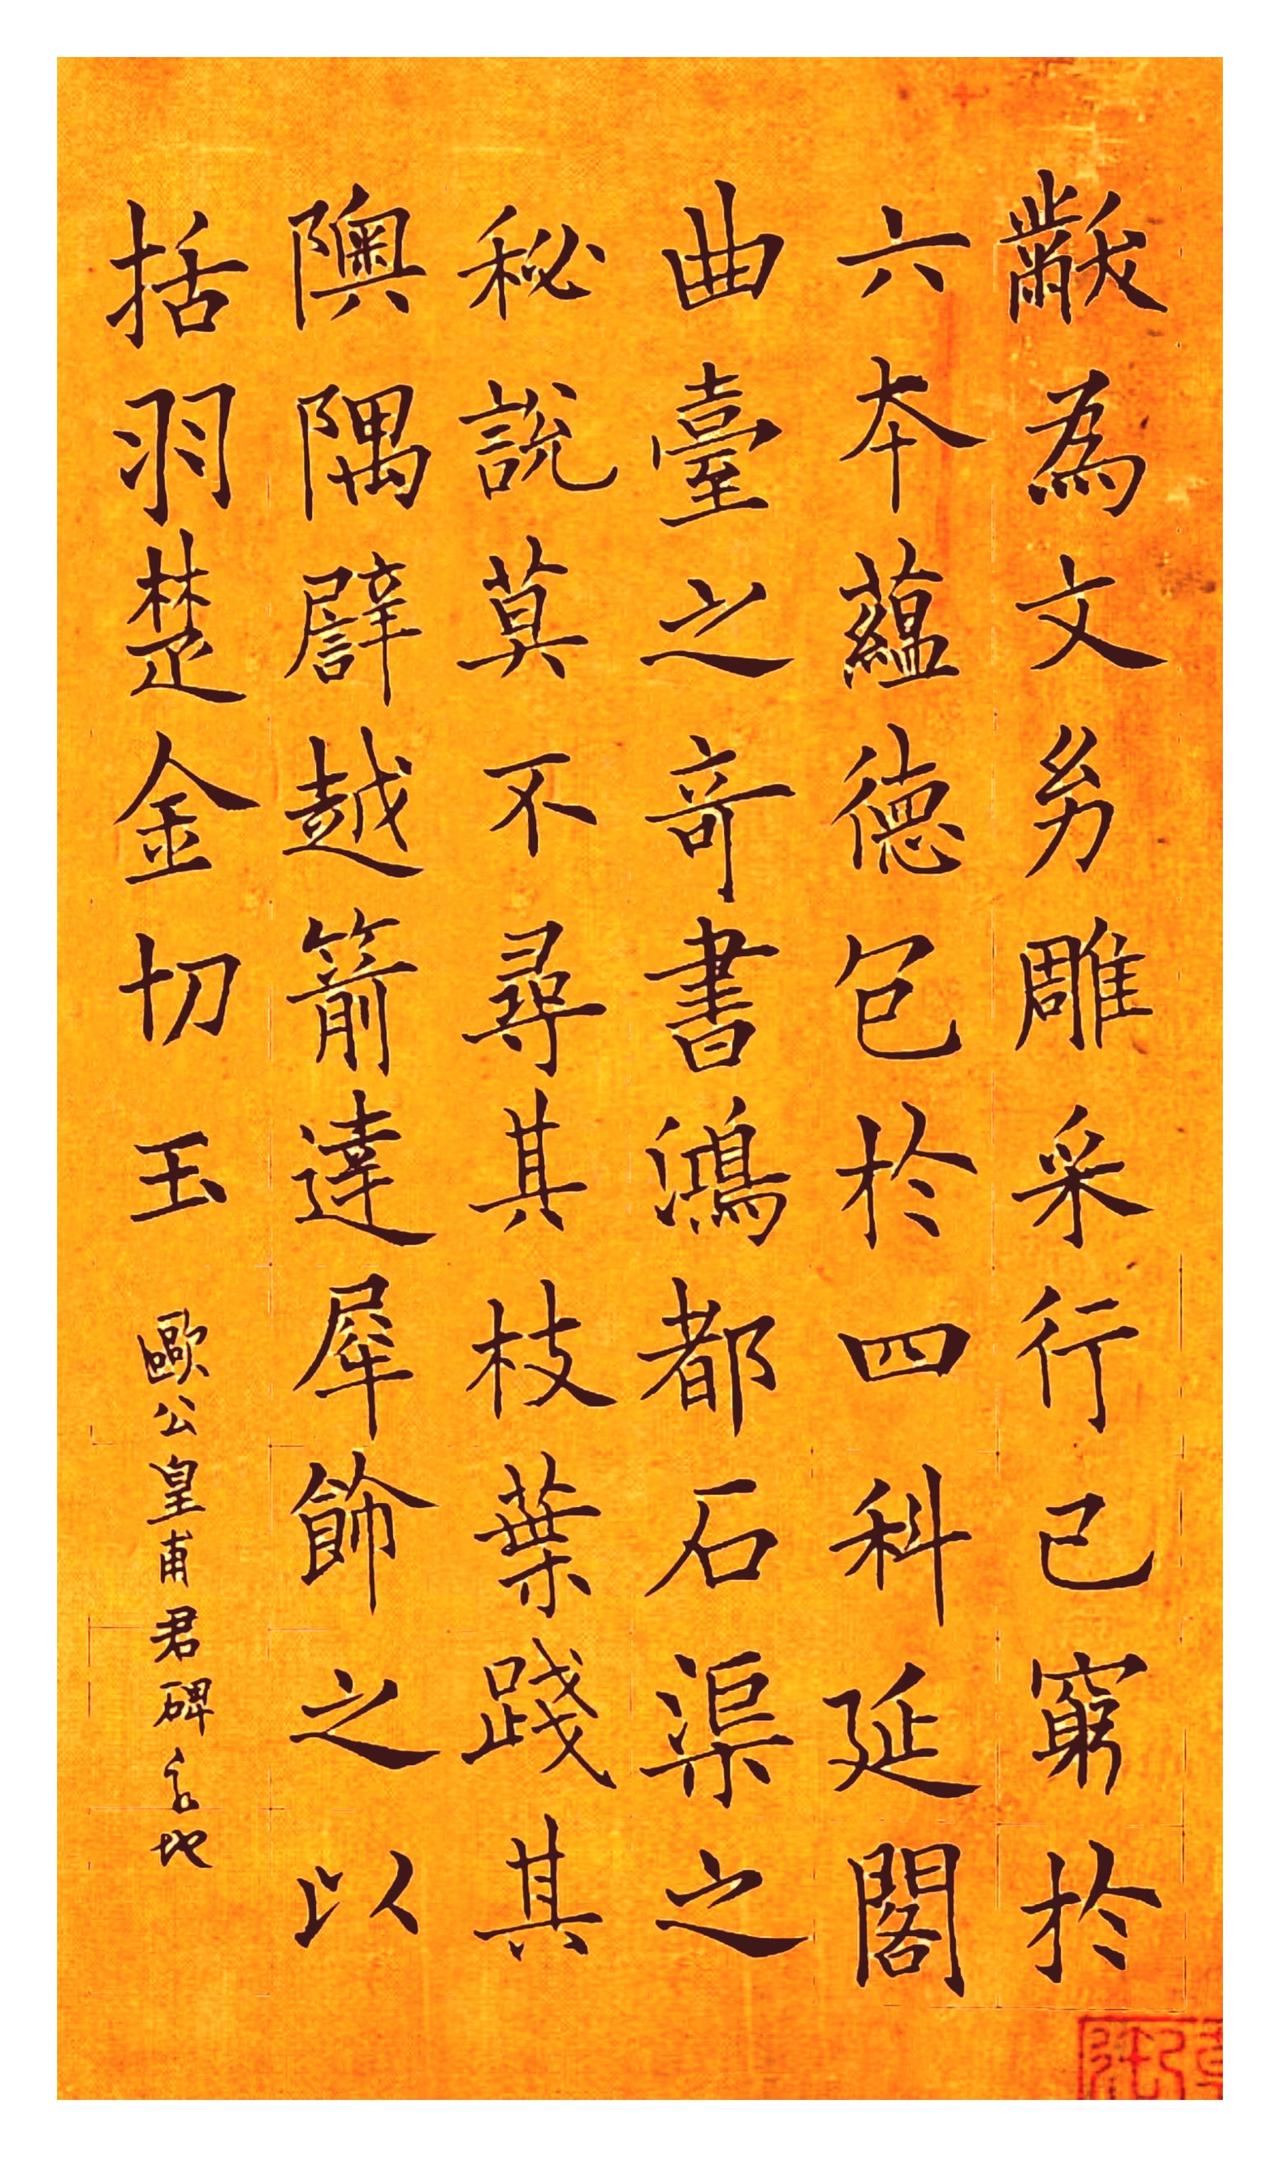 黻為文雕采行己窮於
六本蘊德包於四科延閣
曲臺之奇書鴻都石渠之
秘說莫不尋其枝葉踐其
隩隅譬越箭達犀飾之以
括羽楚金切玉
歐公皇甫君碑